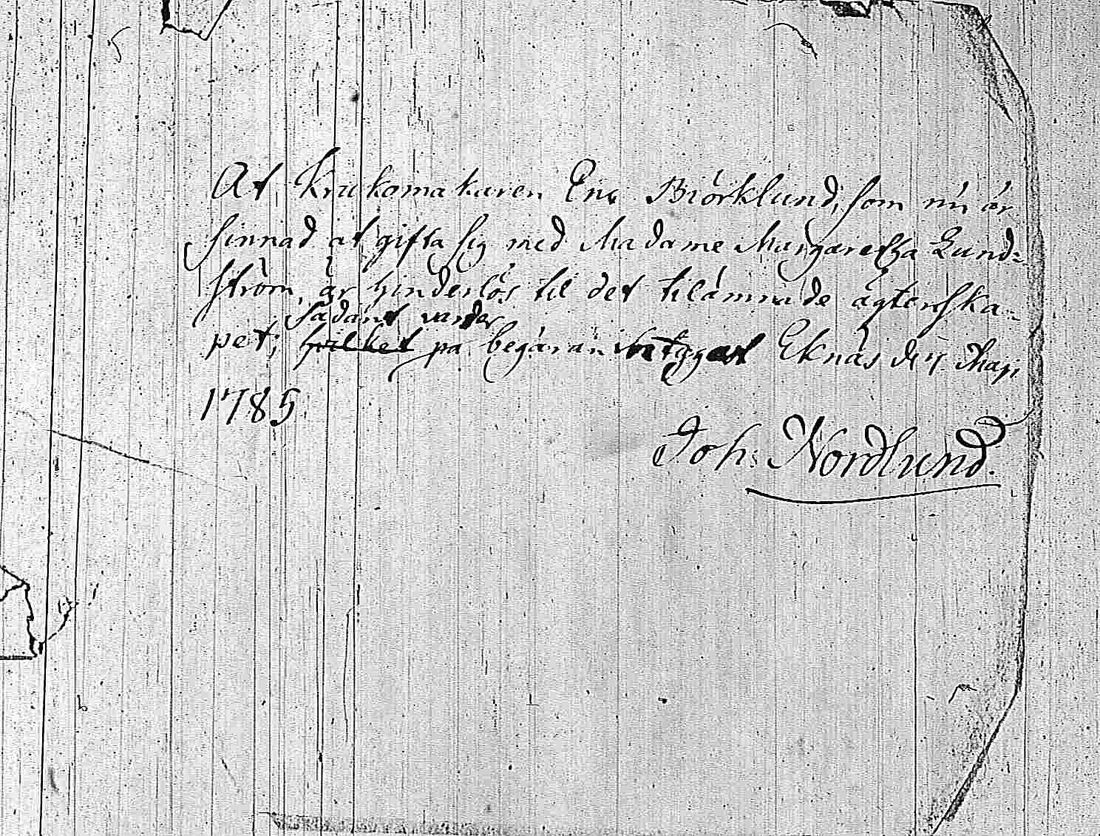 At Krukomakaren Eric Biörklund, som nu är
sinnad at gifta sig med Madame Margaretha Lund=
ström, är hinderlös til det tilämnade ägtenska=
sådant varder
pet; hvilket på begäran intygast Eknäs d. 7. Maji
1785.
Joh: Nordlund.